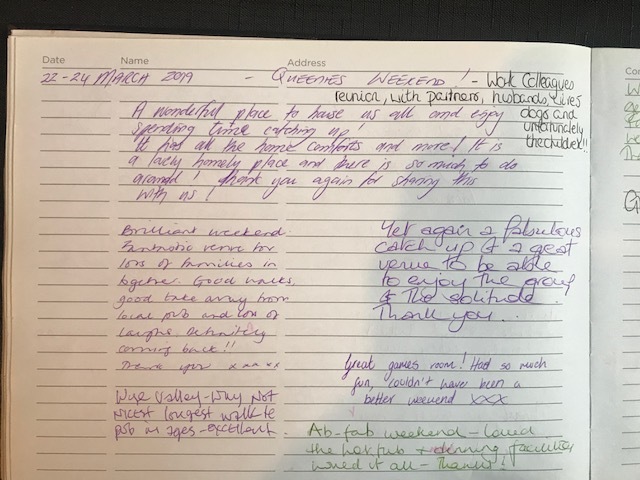 Date Name Address
22-24 MARCH 2019 - QUEENIES WEEKEND! - Work Colleagues
reunion, with partners, husbands, wives
dogs and
unfortunately
the children!!
A wonderful place to house us all and enjoy
spending time catching up!
It had all the home comforts and more! It is
a lovely homely place and there is so much to do
around! Thank you again for sharing this
with us!
Brilliant weekend.
Fantastic venue for
lots of families in
together. Good walks,
good take away from
local pub and lots of
laughs. Definitely
coming back!!
Thank you x x x x
Yet again a fabulous
catch up @ a great
venue to be able
to enjoy the group
& the solitude.
Thank you...
Great games room! Had so much
fun, couldn't have been a
better weekend xxx
Wye Valley - Why Not
Nicest longest walk to
pub in ages - excellent.
Ab-fab weekend - loved
the hot tub + dinning facilities
loved it all - Thanks!
Co